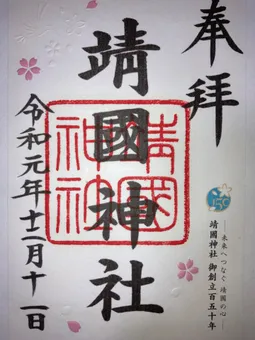 奉拝
靖國神社
靖國
神社
150
―未来へつなぐ 靖國の心―
靖國神社 御創立百五十年
令和元年十二月十一日